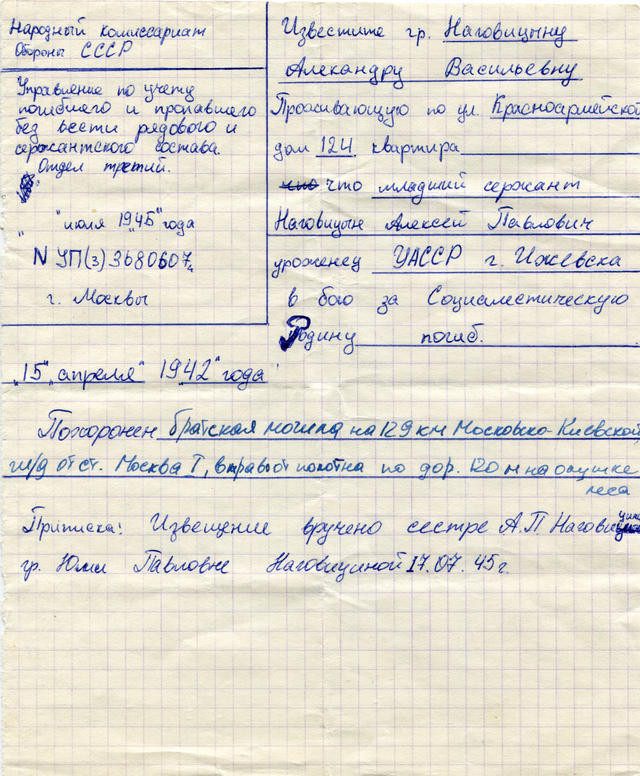 Народный комиссариат
Обороны СССР
Управление по учету
погибшего и пропавшего
без вести рядового и
сержантского состава.
Отдел третий.
" " июля 1945" года
N УП(з)3680607,,
г. Москвы
Известите гр. Наговицыну
Алекандру Васильевну
Проживающую по ул. Красноармейской
дом 124 квартира
что что младший сержант
Наговицын Алексей Павлович
уроженец УАССР г. Ижевска
в бою за Социалестическую
Родину погиб.
"15" "апреля" 1942" года
Похоронен братская могила на 129 км Московско-Киевской
ж/д от ст. Москва I, вправо от полотна по дор. 120 м на опушке
леса
Приписка: Извещение вручено сестре А.П. Наговицина
гр. Юлии Павловне Наговициной 17.07.45 г.